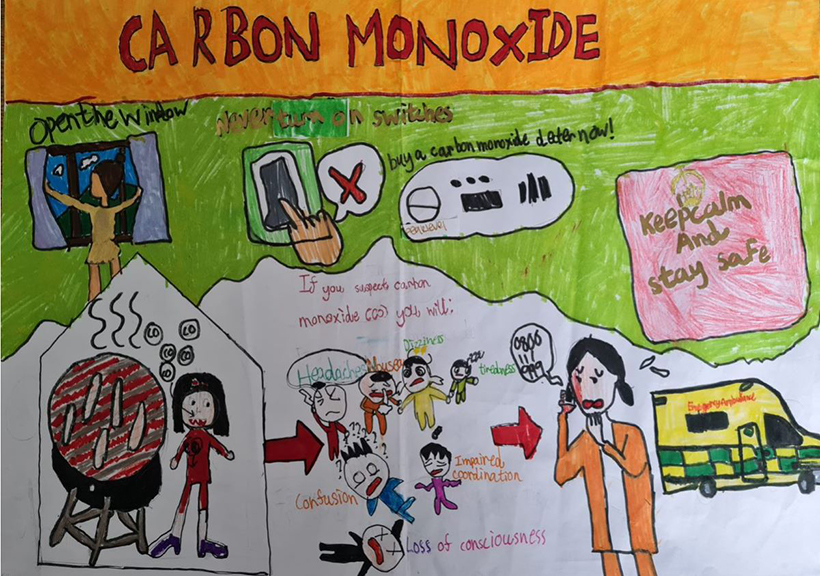 CARBON MONOXIDE
Open the Window
Never turn on switches
buy a carbon monoxide deter now!
Keep calm
And
stay safe
If you suspects carbon
monoxide (co) you will:
co
co
co
co
co
Headaches
Nusea
Dizziness
zzz
tiredness
0800
111
999
Emergency Ambulance
???
Confusion
Impaired
coordination
Loss of consciousness